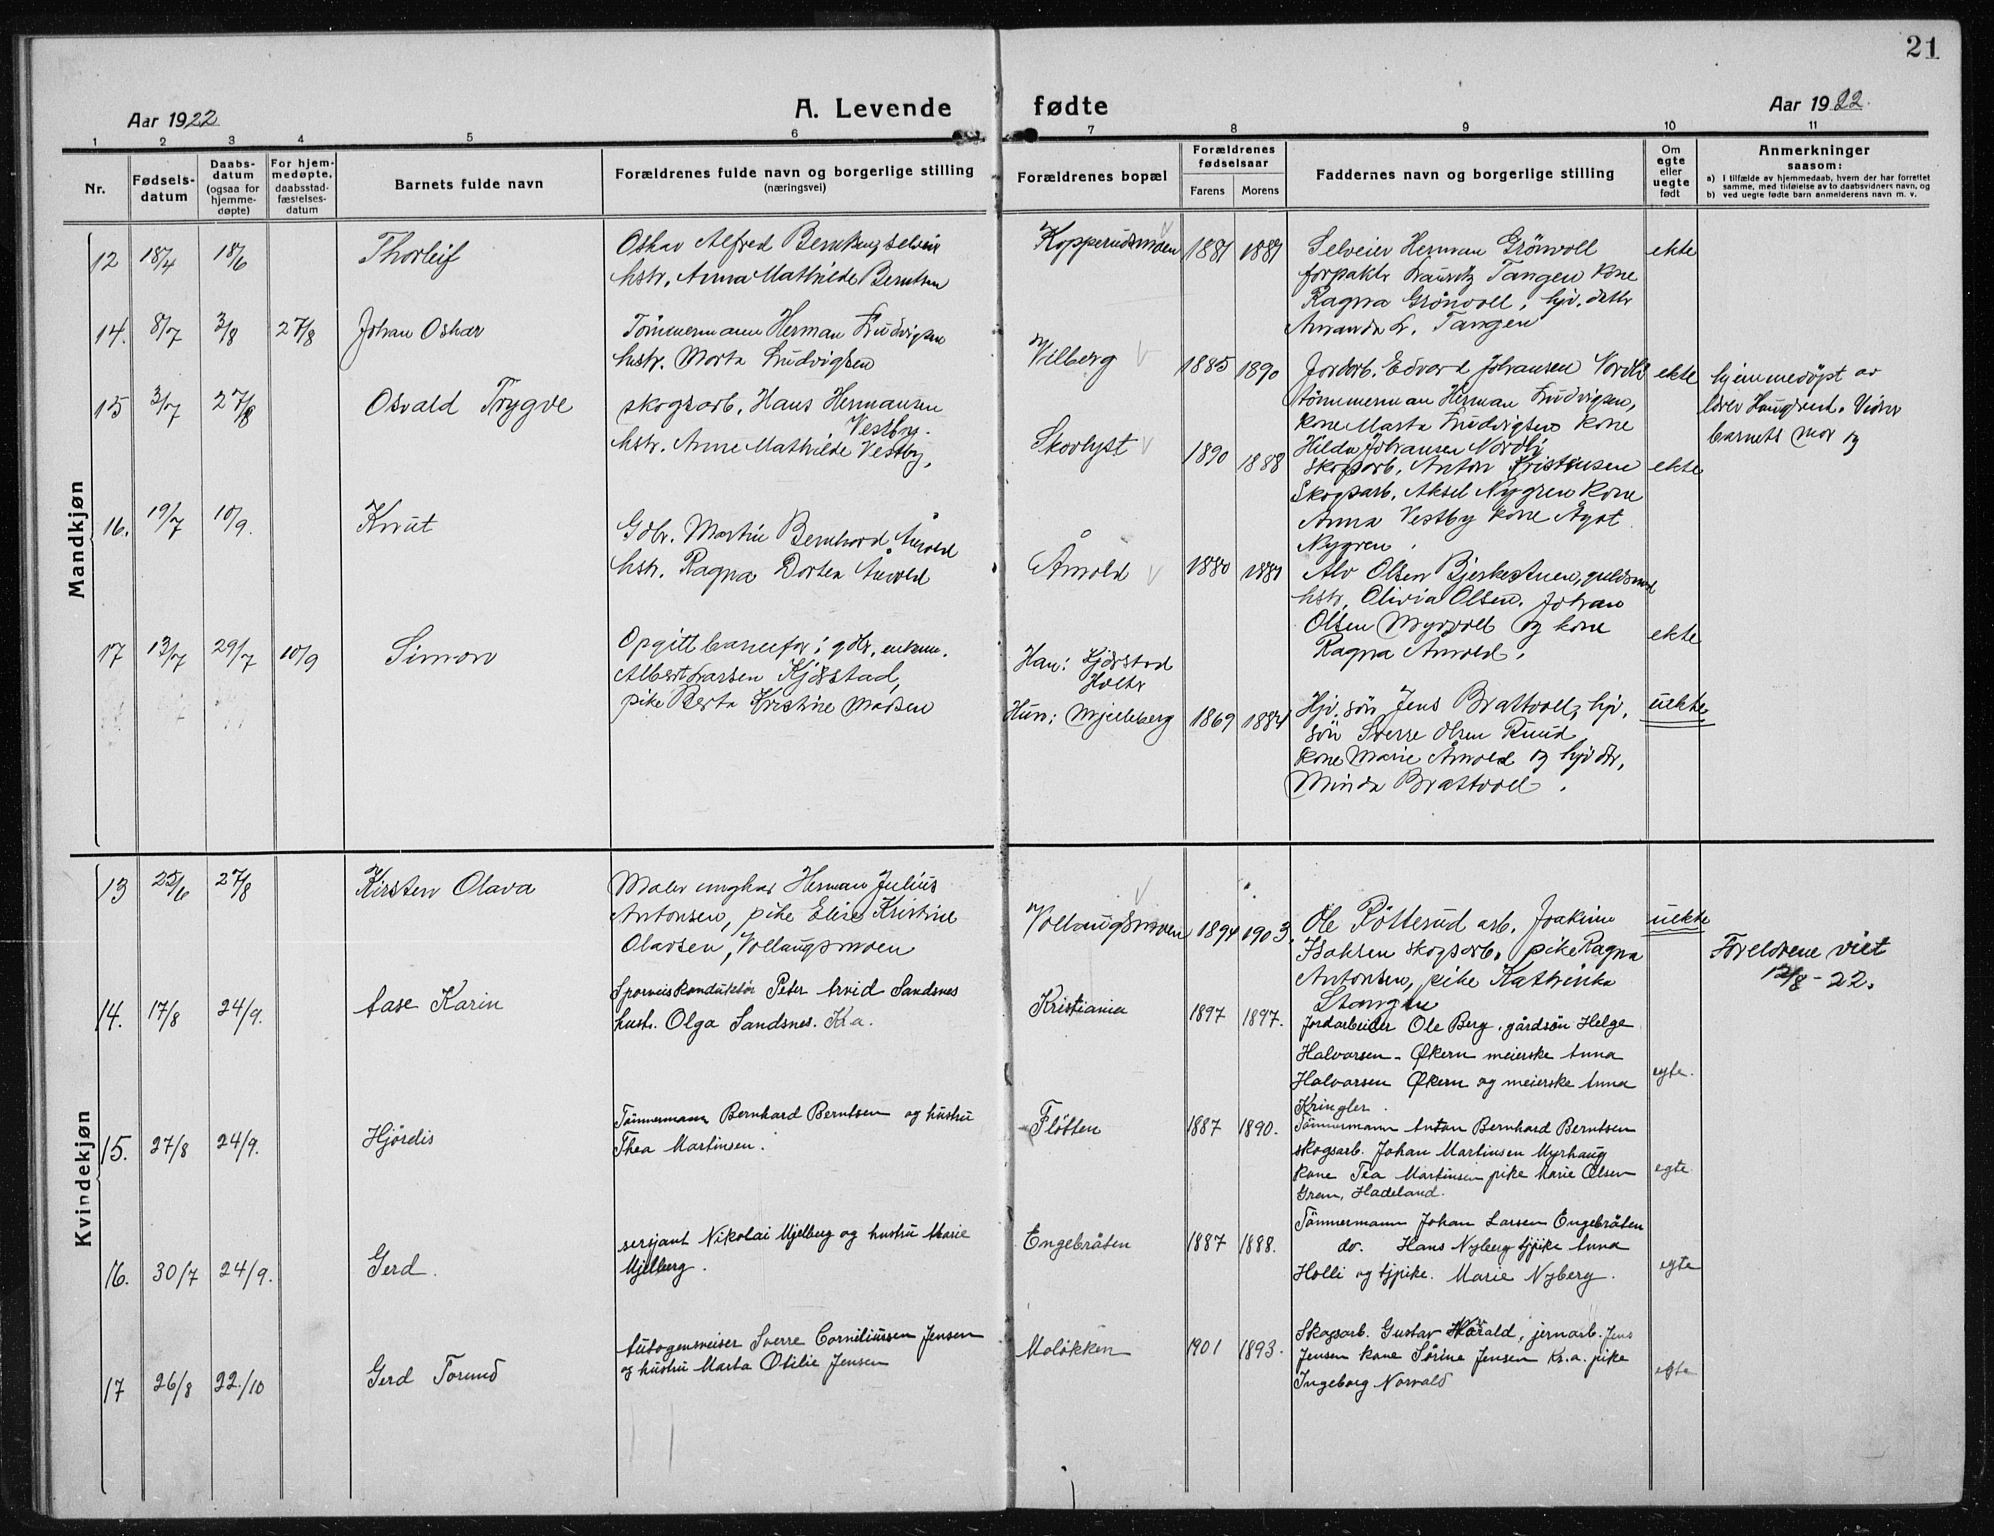 21
Aar 1922
A. Levende fødte
Aar 1922.
1 2 3 4 5 6 7 8 9 10 11
Nr.
Fødsels-
datum
Daabs-
datum
(ogsaa for
hjemme-
døpte)
For hjem-
medøpte,
daabsstad-
fæstelses-
datum
Barnets fulde navn
Forældrenes fulde navn og borgerlige stilling
(næringsvei)
Forældrenes bopæl
Forældrenes
fødselsaar
Farens Morens
Faddernes navn og borgerlige stilling
Om
egte
eller
uegte
født
Anmerkninger
saasom:
a) I tilfælde av hjemmedaab, hvem der har forrettet
samme, med tilføielse av to daabsvidners navn, og
b) ved uegte fødte barn anmelderens navn m. v.
Mandkjøn
12 18/4 18/6 Thorleif
Oskar Alfred
hstr. Anna Mathilde Berntsen
Kopperudsmoen 1881 1881
Selveier Herman Grönvoll
forpaktr Lauritz Tangen kone
Ragna Grönvoll, hjv. dattr
Amanda L. Tangen
ekte
14. 8/7 3/8 27/8 Johan Oskar
Tömmermann Herman Ludvigsen
hustr. Marta Ludvigsen
Vilberg 1885 1890
Jordarb. Edvard Johansen Nordli
tömmerman Herman Ludvigsen,
kone Marta Ludvigsen kone
Hilda Johansen Nordli
ekte
hjemmedöpt av
lærer Haugrud. Vidner
barnets mor og
15 3/7 27/8 Osvald Trygve
skogsarb. Hans Hermansen
Vestby.
hstr. Anne Mathilde Vestby.
Skovlyst 1890 1888
Skogsarb. Anton Kristensen
Skogsarb. Aksel Nygren kone
Anna Vestby kone Agot
Nygren.
ekte
16. 19/7 10/9. Knut
Gdbr. Martin Bernhard Årvold
hstr. Ragna Dortea Årvold
Årvold 1880 1881
Alv Olsen Bjerkestuen,
hstr. Olivia Olsen. Johan
Olsen Myrvoll og kone
Ragna Årvold.
ekte
17 13/7 29/7 10/9 Simon
Opgitt barnefar: gdbr. enkem.
Albert Larsen Kjörstad,
pike Berta Kristine Madsen
Han: Kjörstad
Holter
Hun: Mjelleberg 1869 1884
Hjv. sön Jens Brattvoll, hjv.
sön Sverre Olsen Ruud
kone Marie Årvold og hjv dtr.
Minda Brattvoll.
uekte
Kvindekjøn
13 25/6 27/8 Kirsten Olava
Maler ungkar Herman Julius
Antonsen, pike Elise Kristine
Olavsen, Vollaugsmoen
Vollaugsmoen 1894 1903.
Ole Rötterud arb. Joakim
Isaksen skogsarb. pike Ragna
Antonsen, pike Kathinka
Stangen
uekte
Foreldrene viet
12/8-22.
14. 17/8 24/9. Aase Karin
Sporveiskonduktör Peter Arvid Sandsnes
hust. Olga Sandsnes. Kr.a.
Kristiania 1897 1897.
Jordarbeider Ole Berg, gårdsön Helge
Halvorsen - Økern meierske Anna
Halvorsen Økern og meierske Anna
Kringler.
egte.
15. 27/8 24/9. Hjördis
Tömmermann Bernhard Berntsen og hustru
Thea Martinsen.
Flötten 1887 1890.
Tömmermann Anton Bernhard Berntsen
skogsarb. Johan Martinsen Myrhaug
kone Tea Martinsen pike Marie Olsen
Gran, Hadeland.
egte
16. 30/7 24/9. Gerd.
sersjant Nikolai Mjelberg og hustru Marie
Mjelberg.
Engebråten 1887 1888.
Tömmermann Johan Larsen Engebråten
do. Hans Nyberg tjpike Anna
Holli og tjpike. Marie Nyberg.
egte
17 26/8 22./10 Gerd Torund
Autogensveiser Sverre Corneliussen Jensen
og hustru Marta Otilie Jensen
Moløkken 1901 1893.
Skogsarb. Gustav, jernarb. Jens
Jensen kone Sörine Jensen Kr.a. pike
Ingeborg Norvald
egte